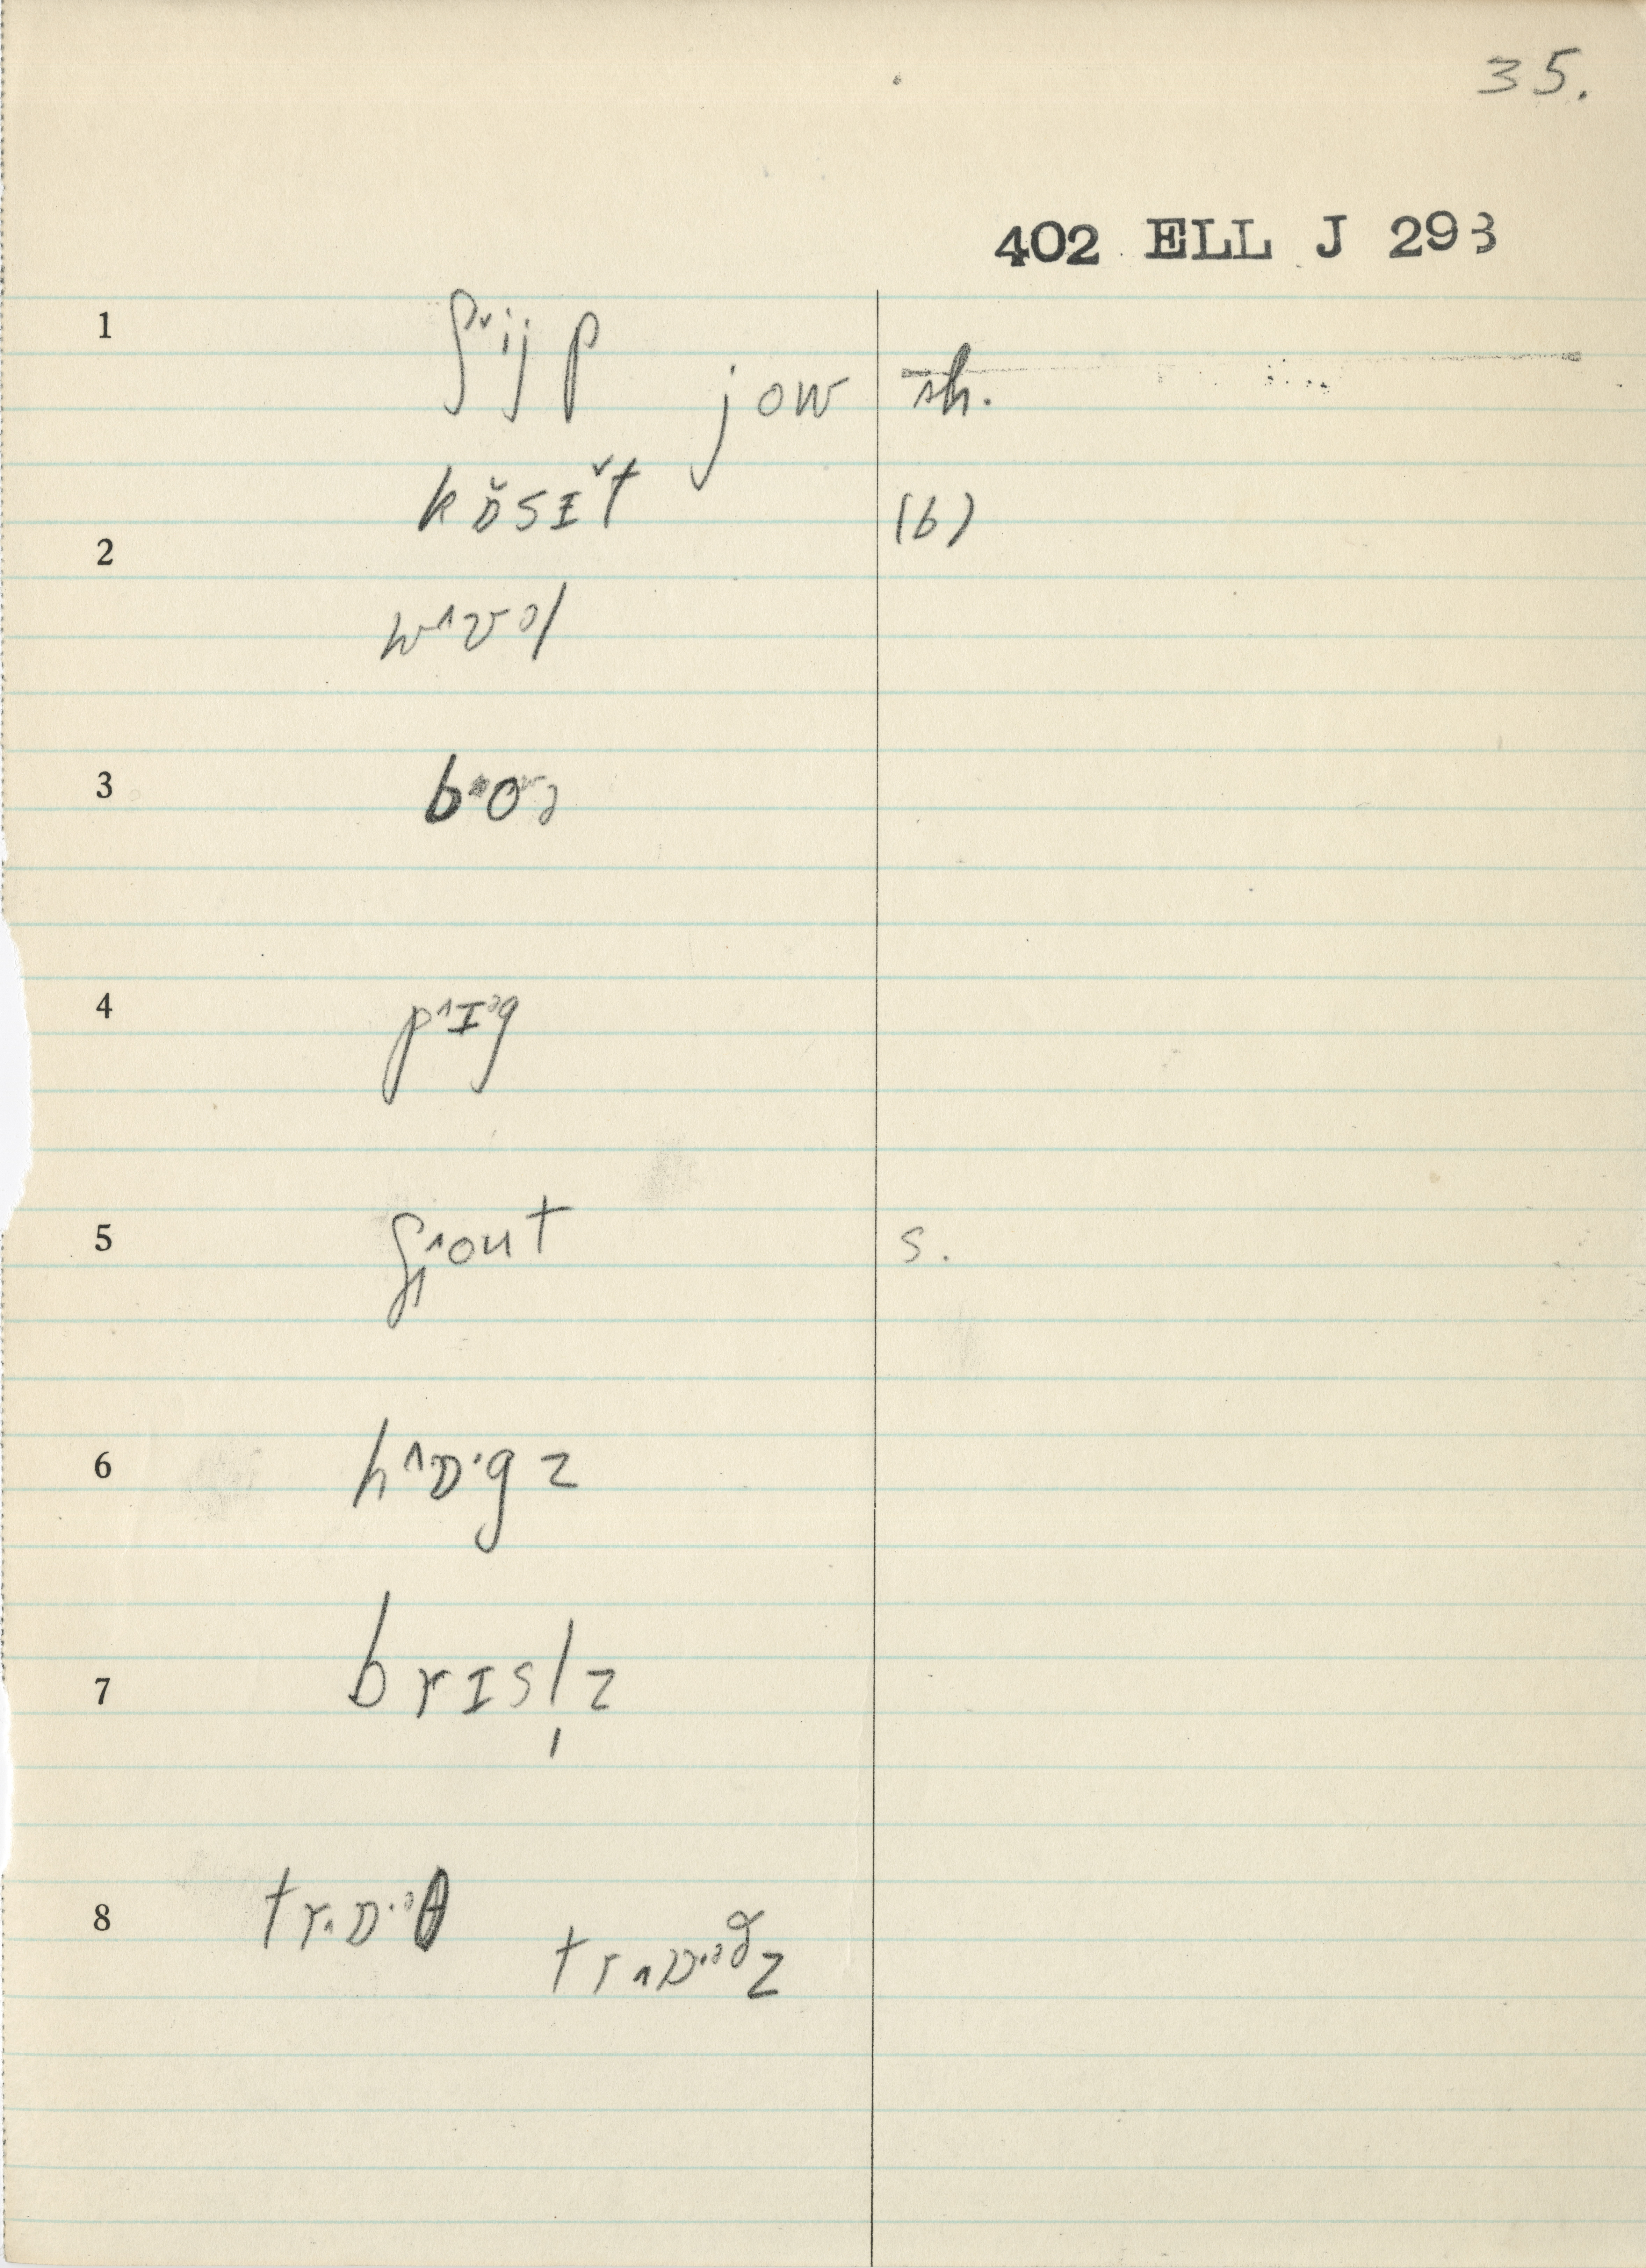 35.
402 ELL J 293
1 ʃˇijp jow sh.
kɒ̆sɪˇt (b)
2
w^vəl
3
4 p^ɪᵊg
5 ʃ^out s.
6 h^ɒ·gz
7 brɪsl̩z
8 tr^ɒ·ᵊθ tr^ɒ·ᵊðz